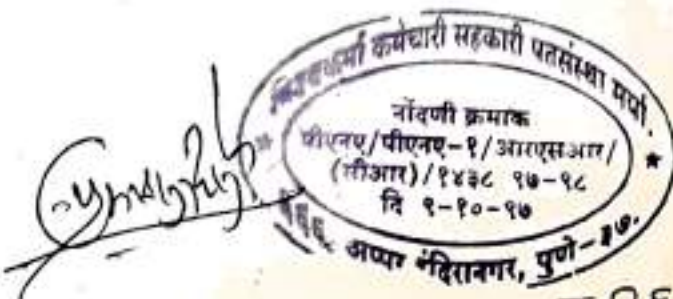 कर्मचारी सहकारी पतसंस्था मर्या.
नोंदणी क्रमांक
पीएनए/पीएनए-१/आरएसआर/
(सीआर)/१४३८ १७-१८
दि ९-१०-१७
अप्पर इंदिरानगर, पुणे-३७.